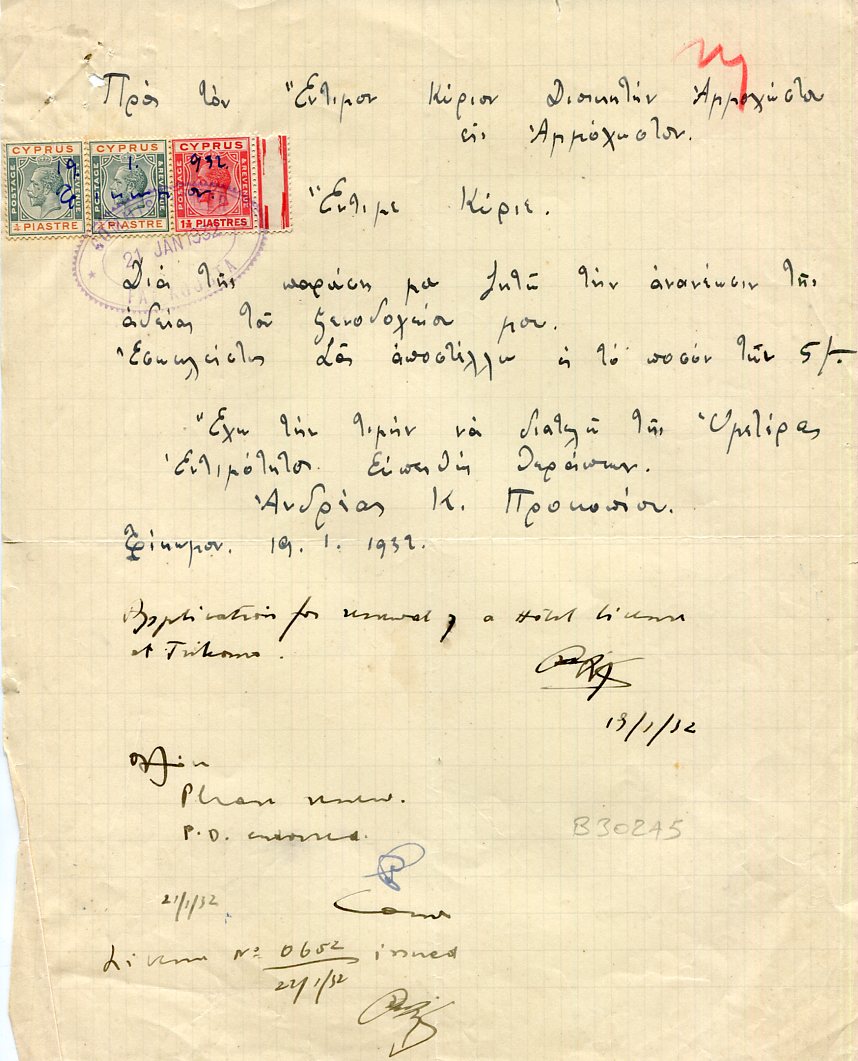 Πρὸς τὸν Ἔντιμον Κύριον Διοικητὴν Ἀμμοχώστου
εἰς Ἀμμόχωστον.
CYPRUS CYPRUS CYPRUS
POSTAGE & REVENUE POSTAGE & REVENUE POSTAGE & REVENUE
19 1. 932.
¼ PIASTRE ¼ PIASTRE 1½ PIASTRES
Ἔντιμε Κύριε.
21 JAN 1932
FAMAGUSTA
Διὰ τῆς παρούσης μου ζητῶ τὴν ἀνανέωσιν τῆς
ἀδείας τοῦ ξενοδοχείου μου.
Ἐσωκλείστως Σᾶς ἀποστέλλω τὸ ποσὸν τῶν 5/-
Ἔχω τὴν τιμὴν νὰ διατελῶ τῆς Ὑμετέρας
Ἐντιμότητος Εὐπειθὴς θεράπων.
Ἀνδρέας Κ. Προκοπίου.
Τρίκωμον. 19. 1. 1932.
Application for renewal of a Hotel license
at Trikomo.
19/1/32
Please renew.
P.O. enclosed.
B302A5
21/1/32
License No 0652 issued
22/1/32